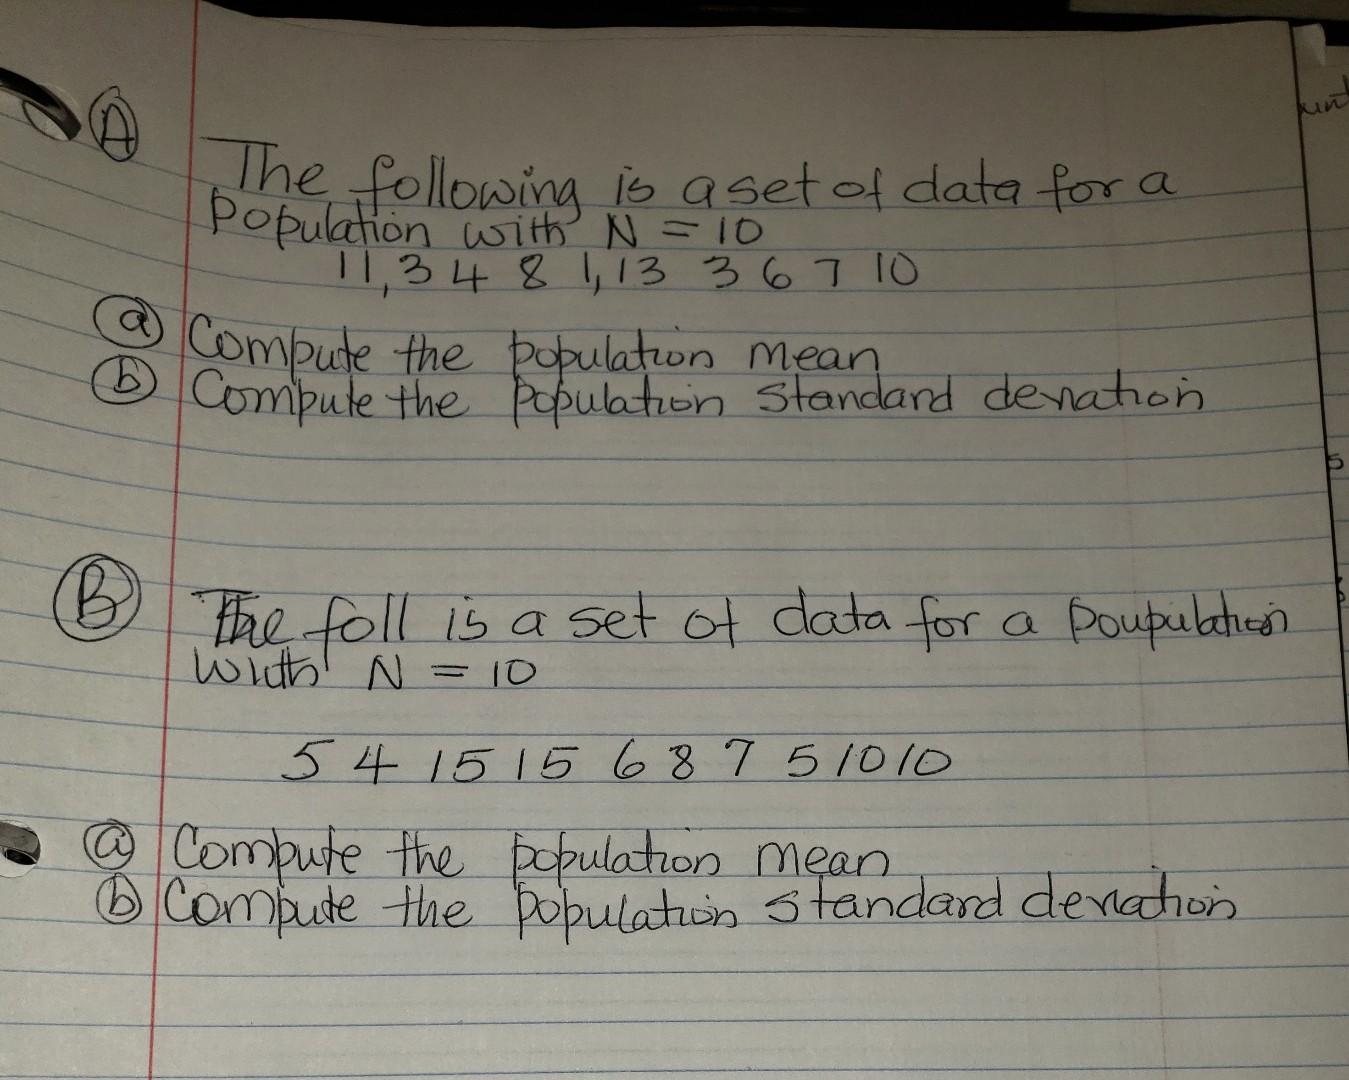 A
The following is a set of data for a
population with N = 10
11, 3 4 8 1, 13 3 6 7 10
a Compute the population mean
b Compute the population standard deviation
B
The foll is a set of data for a poupulation
with N = 10
5 4 15 15 6 8 7 5 10 10
a Compute the population mean
b Compute the population standard deviation